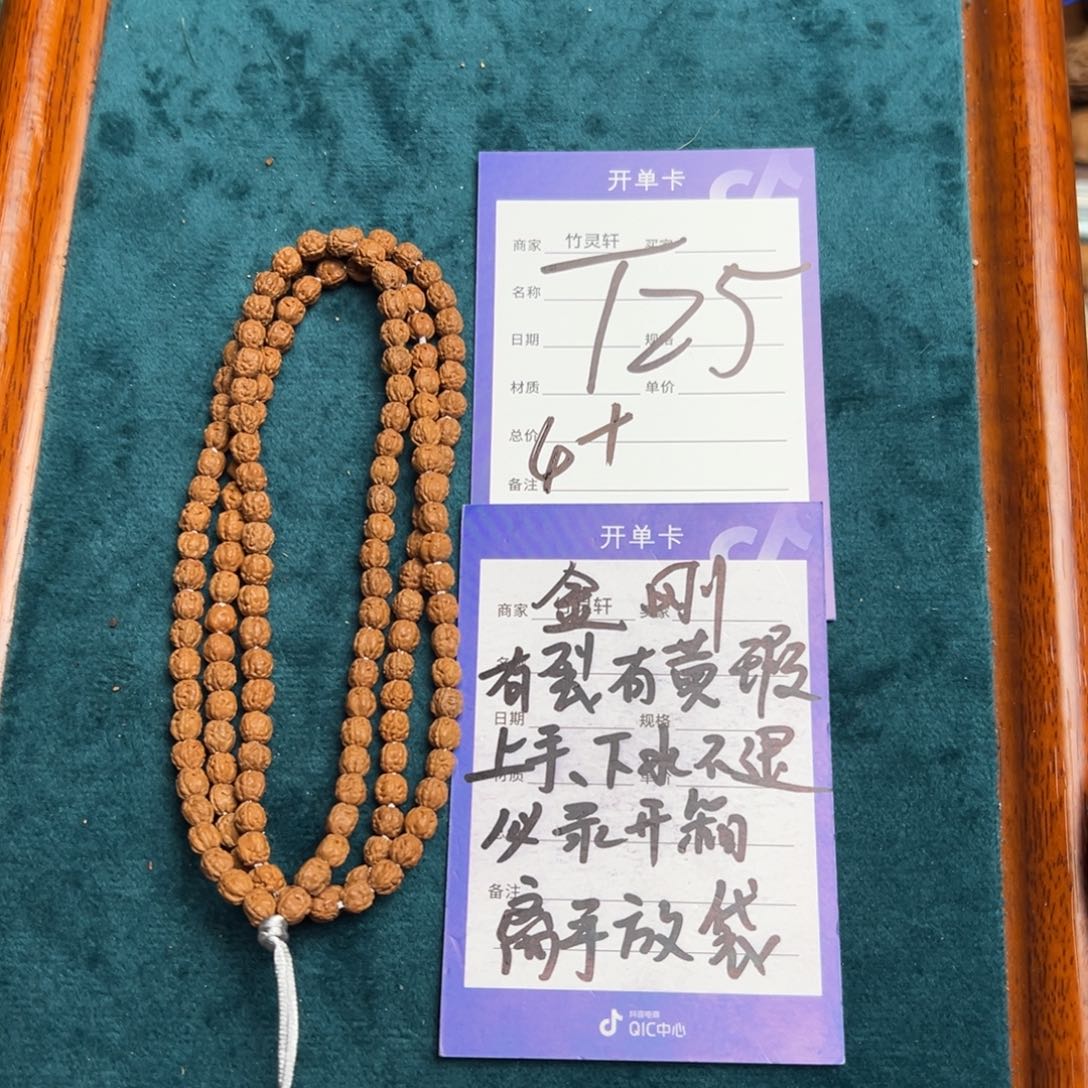 开单卡
商家 竹灵轩 买家
名称 T25
日期 规格
材质 单价
总价 4+
备注
开单卡
商家 金刚 轩
有裂有黄瑕
日期 规格
上手、下水不退
材质
必录开箱
备注
离手放袋
抖音电商
QIC中心